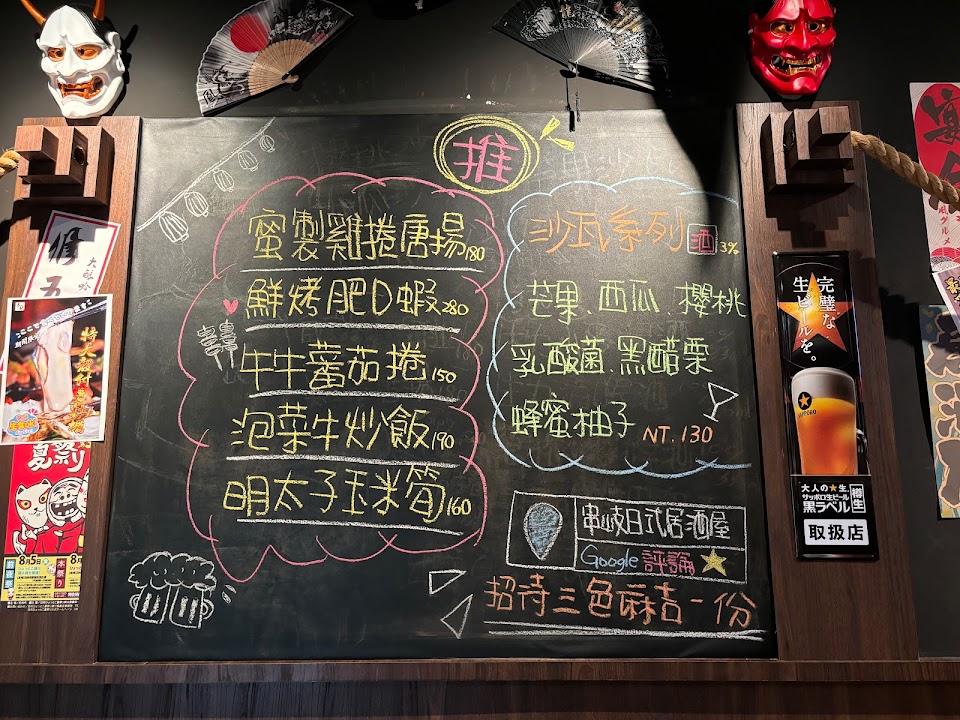 推
蜜製雞捲唐揚180
鮮烤肥D蝦280
牛牛蕃茄捲150
泡菜牛炒飯190
明太子玉米筍160
沙瓦系列 酒3%
芒果、西瓜、櫻桃
乳酸菌、黑醋栗
蜂蜜柚子 NT.130
串岐日式居酒屋
Google評論
招待三色麻吉一份
完璧な
生ビールを。
SAPPORO
大人の★生
サッポロ生ビール
黒ラベル
樽生
取扱店
夏祭り
8月5日
本祭り
宴